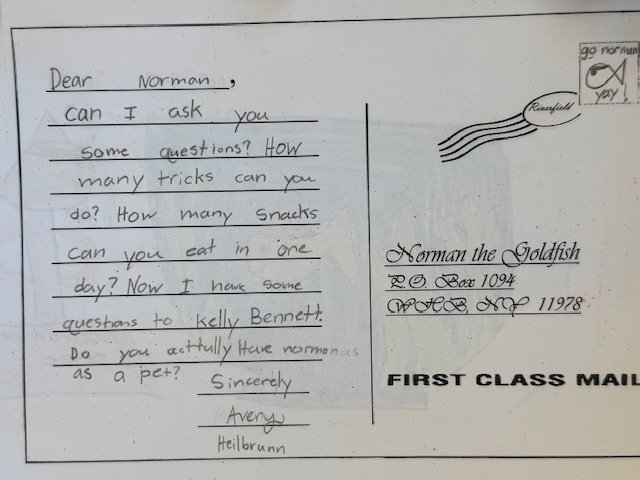 Dear Norman,
can I ask you
some questions? How
many tricks can you
do? How many snacks
can you eat in one
day? Now I have some
questions to kelly Bennett.
Do you acttully Have norman as
as a pet?
Sincerely
Avery
Heilbrunn
go norman
yay!
Riverfield
Norman the Goldfish
P.O. Box 1094
WHB, NY 11978
FIRST CLASS MAIL